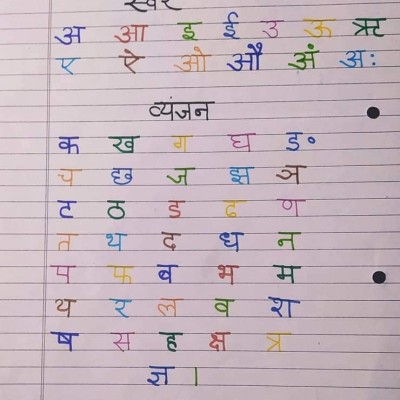 स्वर
अ आ इ ई उ ऊ ऋ
ए ऐ ओ औ अं अः
व्यंजन
क ख ग घ ङ
च छ ज झ ञ
ट ठ ड ढ ण
त थ द ध न
प फ ब भ म
य र ल व श
ष स ह क्ष त्र
ज्ञ ।